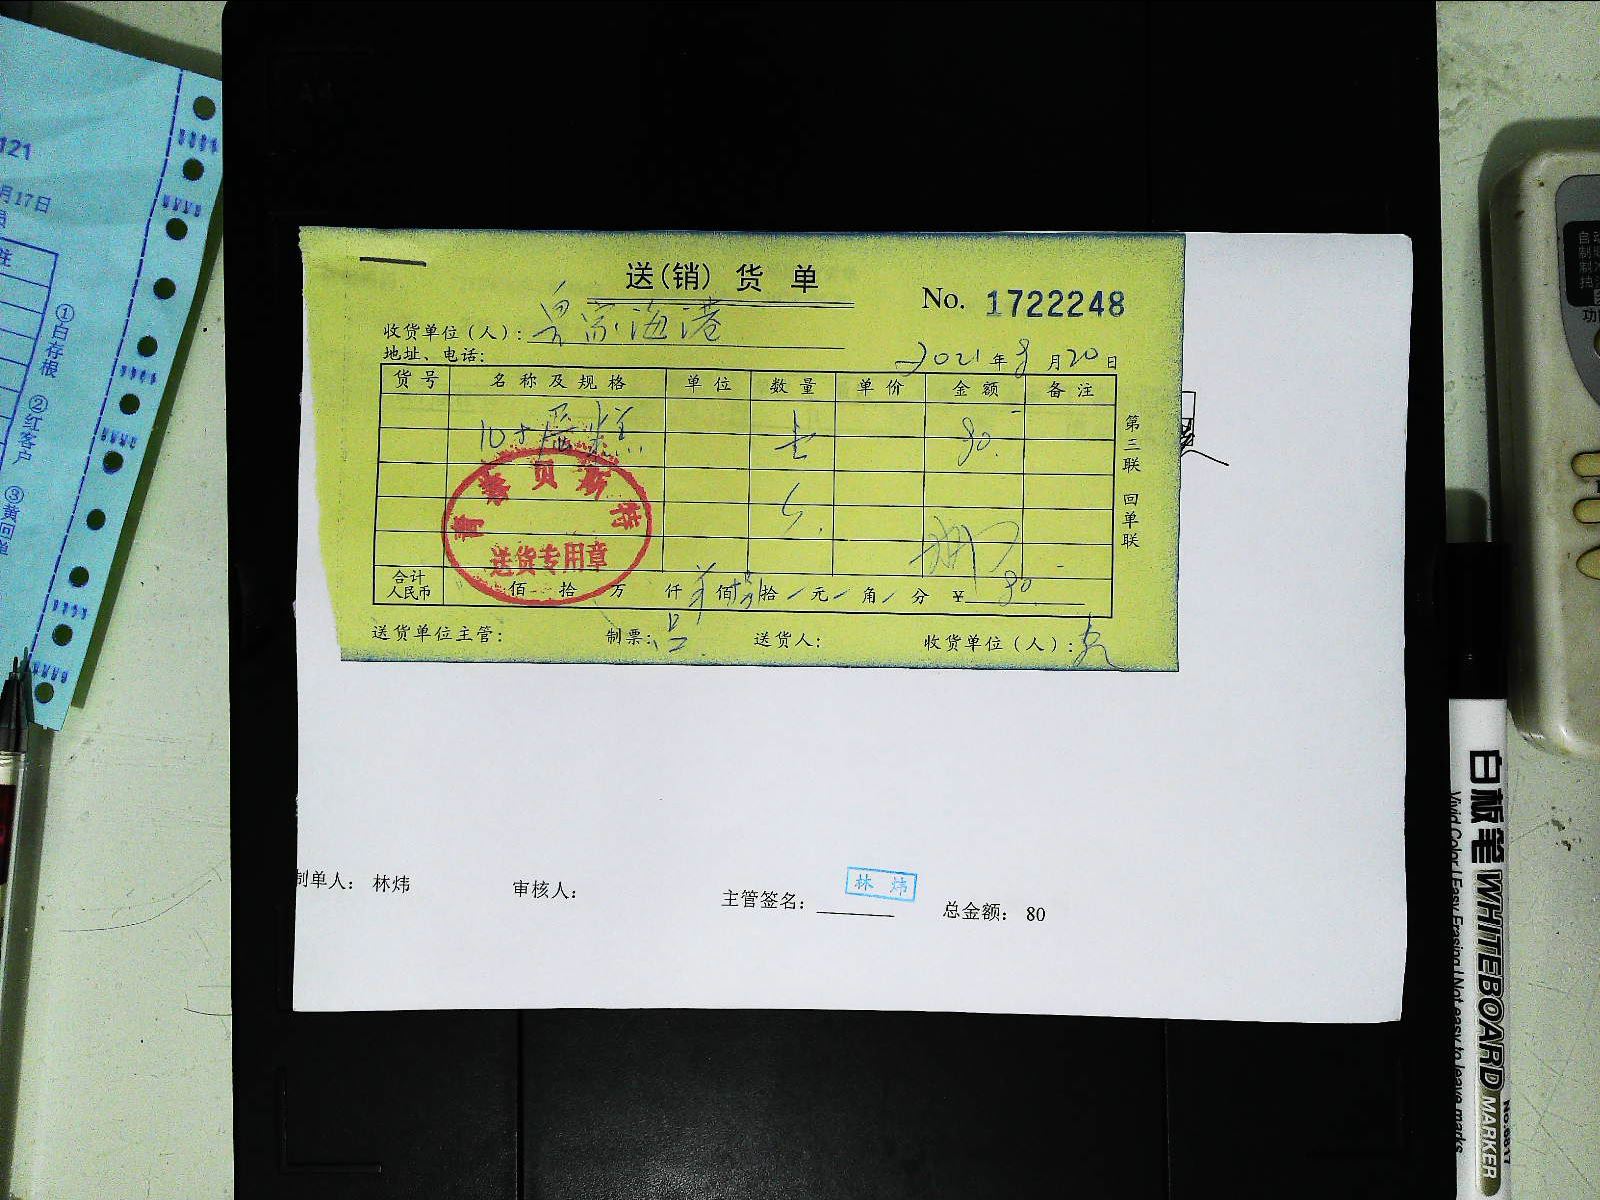 送(销)货单
No. 1722248
收货单位(人):皇家海港
地址、电话:
2021年8月20日
货号 名称及规格 单位 数量 单价 金额 备注
10寸蛋糕 80.
青 泰 贝 斯 特
送货专用章
合计人民币 佰 拾 万 仟 佰 拾 元 角 分 ¥ 80.
送货单位主管: 制票:吕 送货人: 收货单位(人):
第三联 回单联
制单人: 林炜 审核人: 主管签名: 林炜 总金额: 80
121
月17日
注
①白存根 ②红客户 ③黄回单
白板笔 WHITEBOARD MARKER
Vivid Color / Easy Erasing / Not easy to leave marks